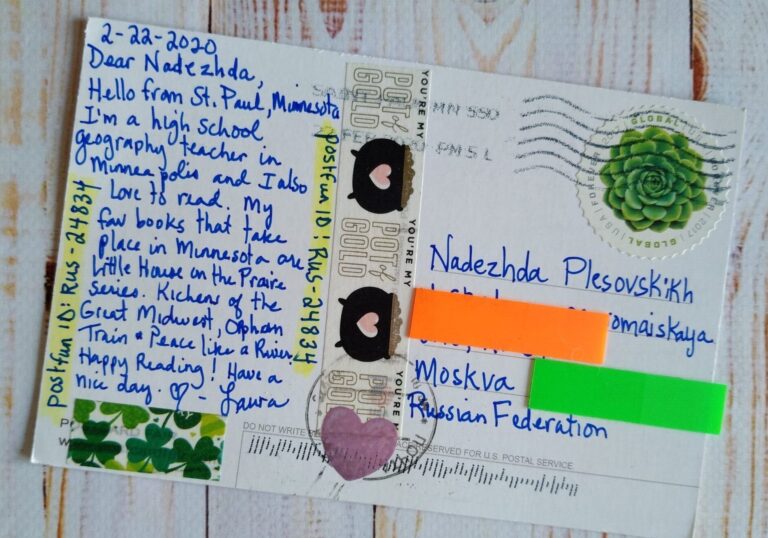 2-22-2020
Dear Nadezhda,
Hello from St. Paul, Minnesota
I'm a high school
geography teacher in
Minneapolis and I also
Love to read. My
fav books that take
place in Minnesota are
Little House on the Praire
series. Kichens of the
Great Midwest, Orphan
Train & Peace like a River.
Happy Reading! Have a
nice day. ♡ - Laura
postfun ID: Rus-24834
postfun ID: Rus-24834
YOU'RE MY
POT of
GOLD
YOU'RE MY
POT of
GOLD
YOU'RE MY
POT of
GOLD
MN 550
FEB 2020 PM 5 L
GLOBAL USA FOREVER 2017
GLOBAL
Nadezhda Plesovskikh
omaiskaya
Moskva
Russian Federation
DO NOT WRITE
RESERVED FOR U.S. POSTAL SERVICE